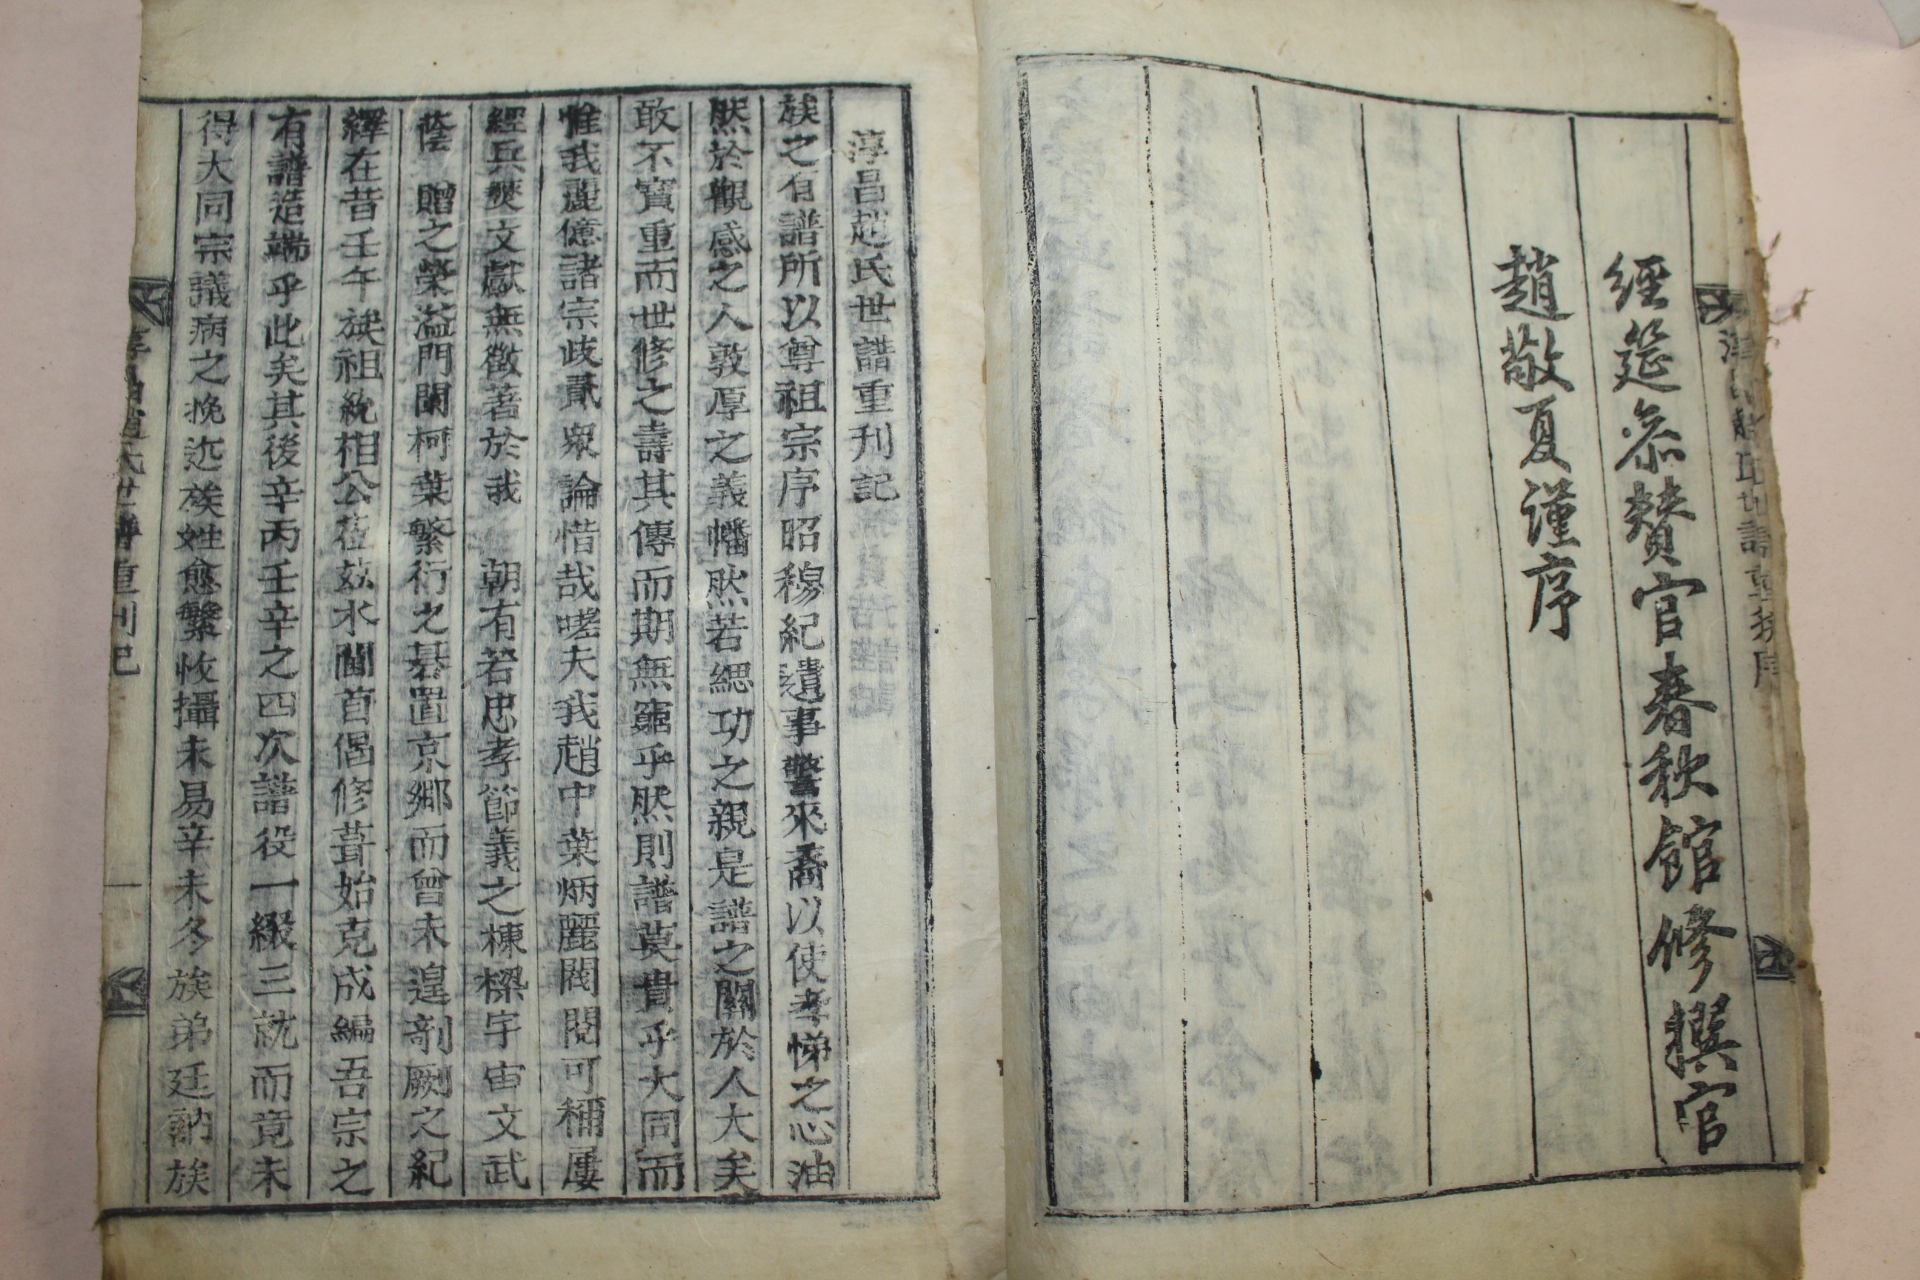 經筵參贊官春秋館修撰官
趙敬夏謹序
淳昌趙氏世譜重刊記
族之有譜所以尊祖宗序昭穆紀遺事警來裔以使孝悌之心油
然於觀感之人敦厚之義幡然若緦功之親是譜之關於人大矣
敢不寶重而世修之壽其傳而期無窮乎然則譜莫貴乎大同而
惟我麗億諸宗歧貳衆論惜哉嗟夫我趙中葉炳麗閥閱可稱屢
經兵燹文獻無徵著於我 朝有若忠孝節義之棟樑宇宙文武
蔭 贈之榮溢門闌柯葉繁衍之碁置京鄕而曾未遑剞劂之紀
繹在昔壬午族祖統相公莅玆水閫首倡修葺始克成編吾宗之
有譜造端乎此矣其後辛丙壬辛之四次譜役一綴三就而竟未
得大同宗議病之挽近族姓愈繁收攝未易辛未冬族弟廷訥族
淳昌趙氏世譜重刊記
一